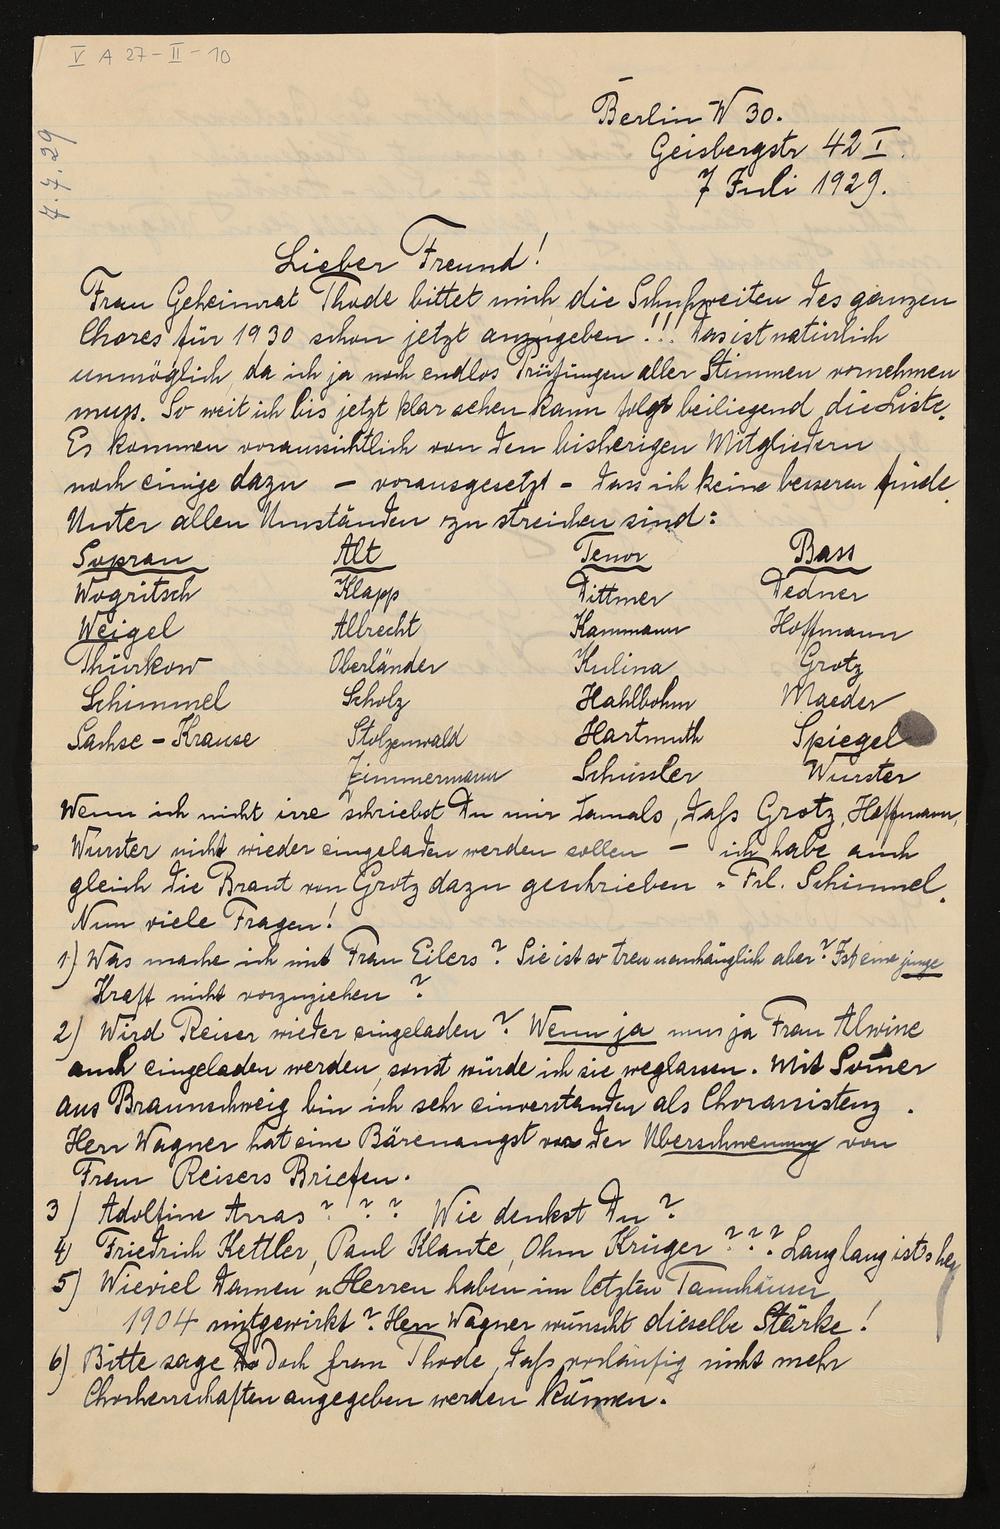 V A 27-II-10
7.7.29
Berlin W 30.
Geisbergstr 42 I.
7 Juli 1929.
Lieber Freund!
Frau Geheimrat Thode bittet mich, die Schuhweiten des ganzen
Chores für 1930 schon jetzt anzugeben!!! Das ist natürlich
unmöglich, da ich ja noch endlos Prüfungen aller Stimmen vornehmen
muss. So weit ich bis jetzt klar sehen kann folgt beiliegend die Liste.
Es kommen voraussichtlich von den bisherigen Mitgliedern
noch einige dazu – vorausgesetzt – dass ich keine besseren finde.
Unter allen Umständen zu streichen sind:
Sopran Alt Tenor Bass
Wogritsch Klapp Dittmer Dedner
Weigel Albrecht Kammann Hoffmann
Thürkow Oberländer Kulina Grotz
Schimmel Scholz Hahlbohm Maeder
Sachse-Krause Stolzenwald Hartmuth Spiegel
Zimmermann Schüssler Wurster
Wenn ich nicht irre schriebst Du mir damals, dafs Grotz, Hoffmann,
Wurster nicht wieder eingeladen werden sollen – ich habe auch
gleich die Braut von Grotz dazu geschrieben = Frl. Schimmel.
Nun viele Fragen!
1) Was mache ich mit Frau Eilers? Sie ist so treu u anhänglich aber? Ist eine junge
Kraft nicht vorzuziehen?
2) Wird Reiser wieder eingeladen? Wenn ja muss ja Frau Alwine
auch eingeladen werden, sonst würde ich sie weglassen. Mit
aus Braunschweig bin ich sehr einverstanden als Chorassistenz.
Herr Wagner hat eine Bärenangst vor der Überschwemmung von
Frau Reisers Briefen.
3) Adolfine Arras ? ? ? Wie denkst Du?
4) Friedrich Kettler, Paul Klante, Ohm Krüger ??? Lang lang ist's her
5) Wieviel Damen u Herren haben im letzten Tannhäuser
1904 mitgewirkt? Herr Wagner wünscht dieselbe Stärke!
6) Bitte sage doch Frau Thode, dafs vorläufig nicht mehr
Chorherrschaften angegeben werden können.